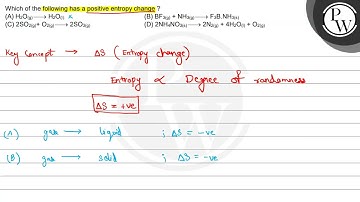 Which of the following has a positive entropy change ?
(A) H₂O(g) ⟶ H₂O(l)
(B) BF₃(g) + NH₃(g) ⟶ F₃B.NH₃(s)
(C) 2SO₂(g)+ O₂(g) ⟶ 2SO₃(g)
(D) 2NH₄NO₃(s) ⟶ 2N₂(g) + 4H₂O(l) + O₂(g)
PW
Key concept → ΔS (Entropy change)
Entropy ∝ Degree of randomness
ΔS = +ve
(A) gas ⟶ liquid ; ΔS = -ve
(B) gas ⟶ solid ; ΔS = -ve